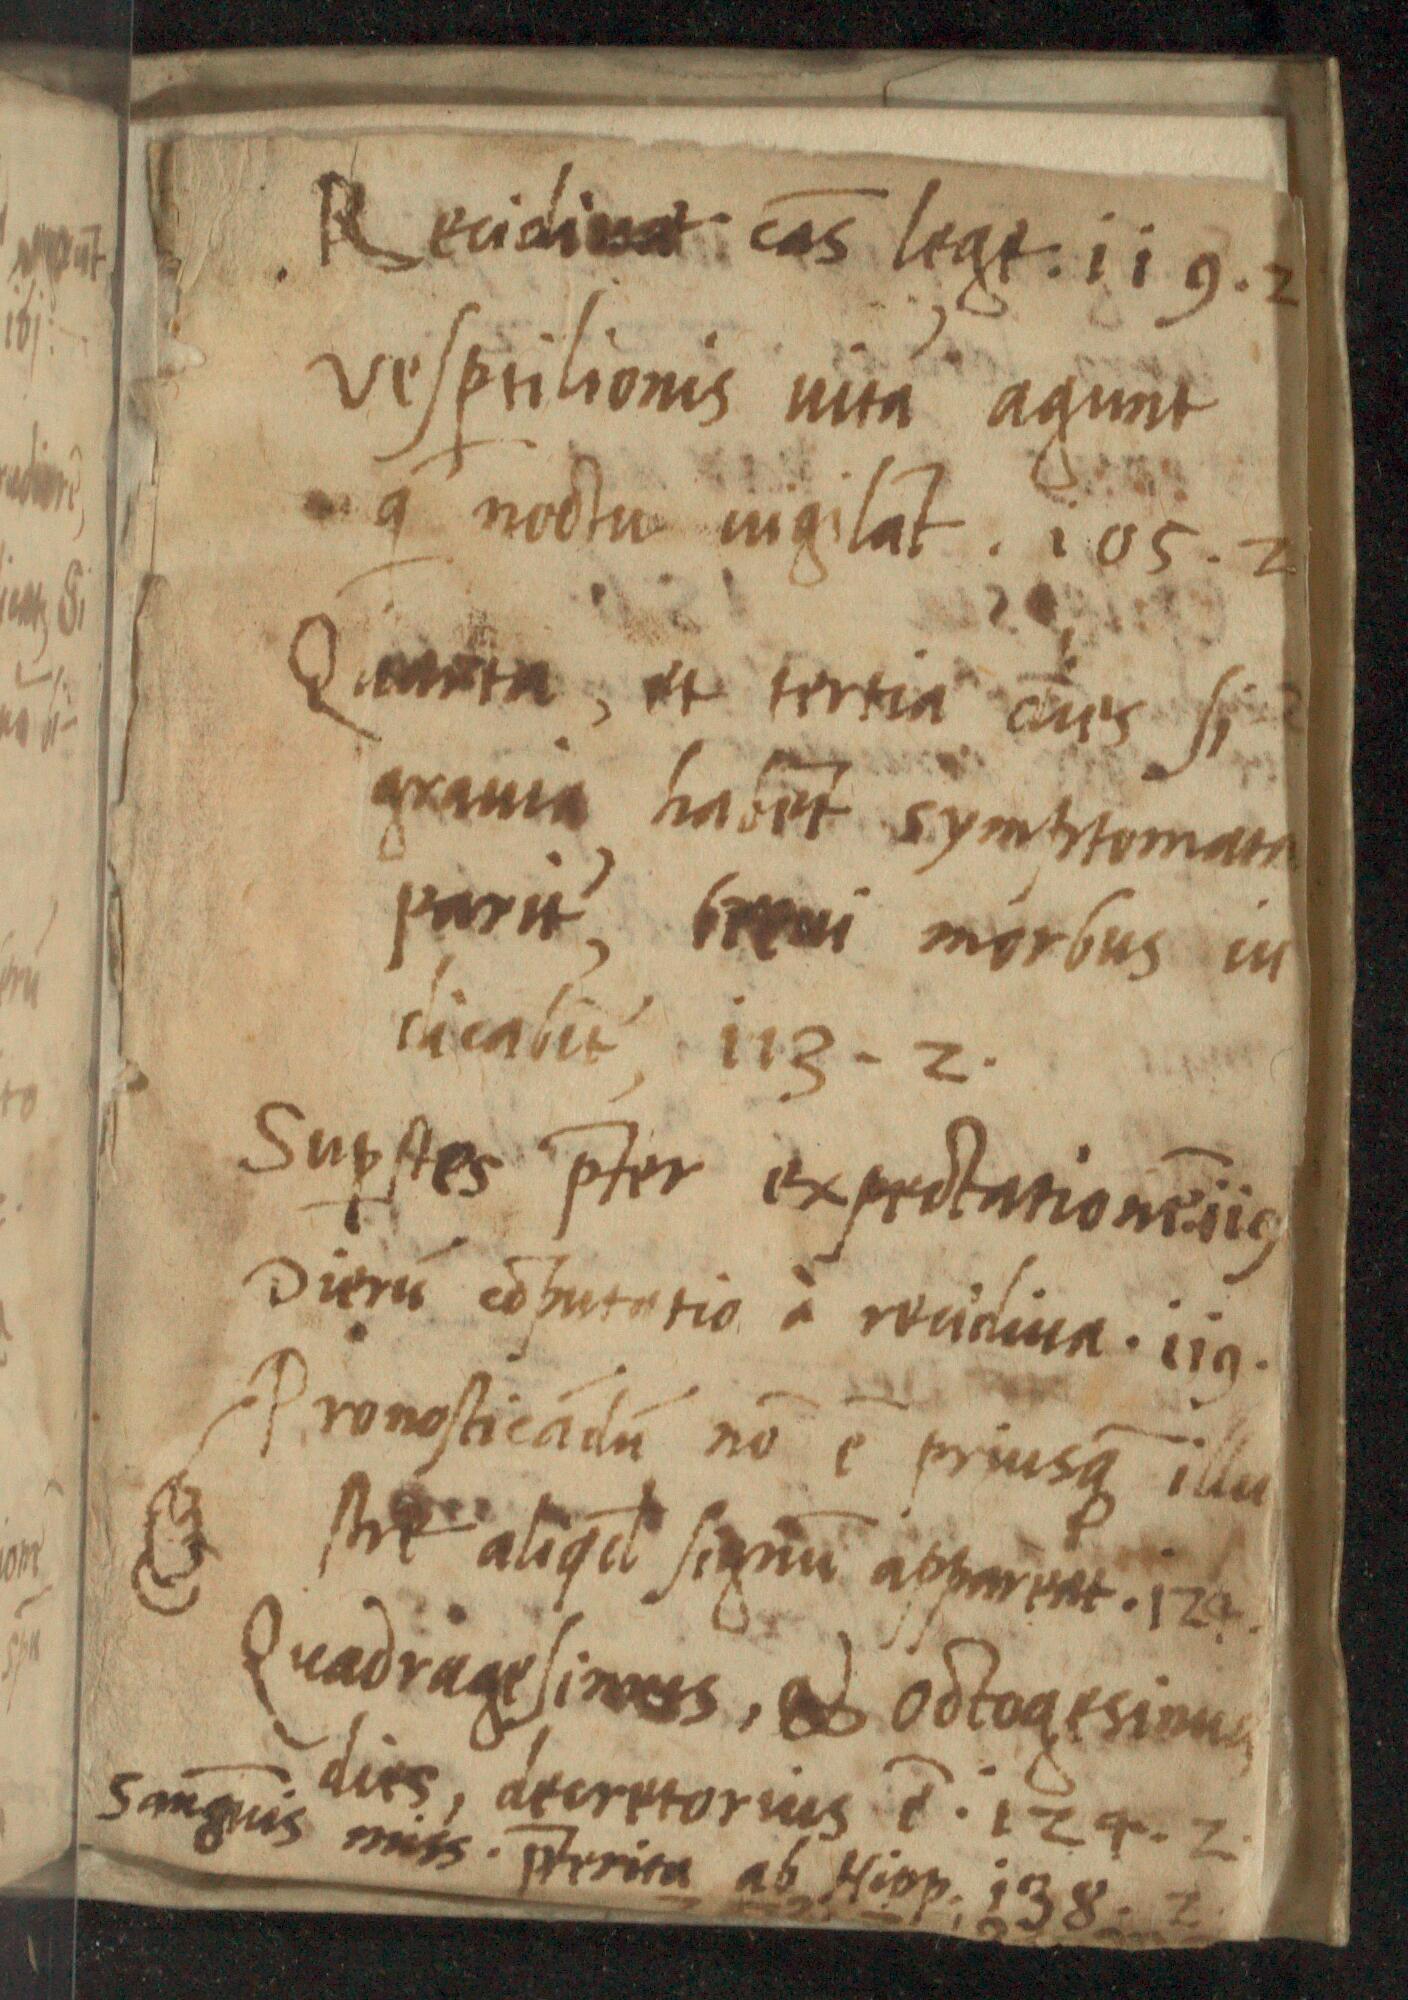 Recidiuat cās legt. 119. 2
Vesptilionis uitã agunt
q̃ noctu uigilāt. 105. 2
Quarta, et tertia dies si
grauia habēt symptomata
pariť, breui morbus iu
dicabiť, 113 - 2.
Supstes p̄ter expectationē. 119
Dierũ cōputatio à recidiua. 119.
Pronosticādũ nō ē priusq̄ illu
stre aliqd̄ signũ appareat. 124.
Quadragesimus, & octogesimus
dies, decretorius ē. 124. 2.
Sanguis miss. p̄terita ab Hipp. 138. 2